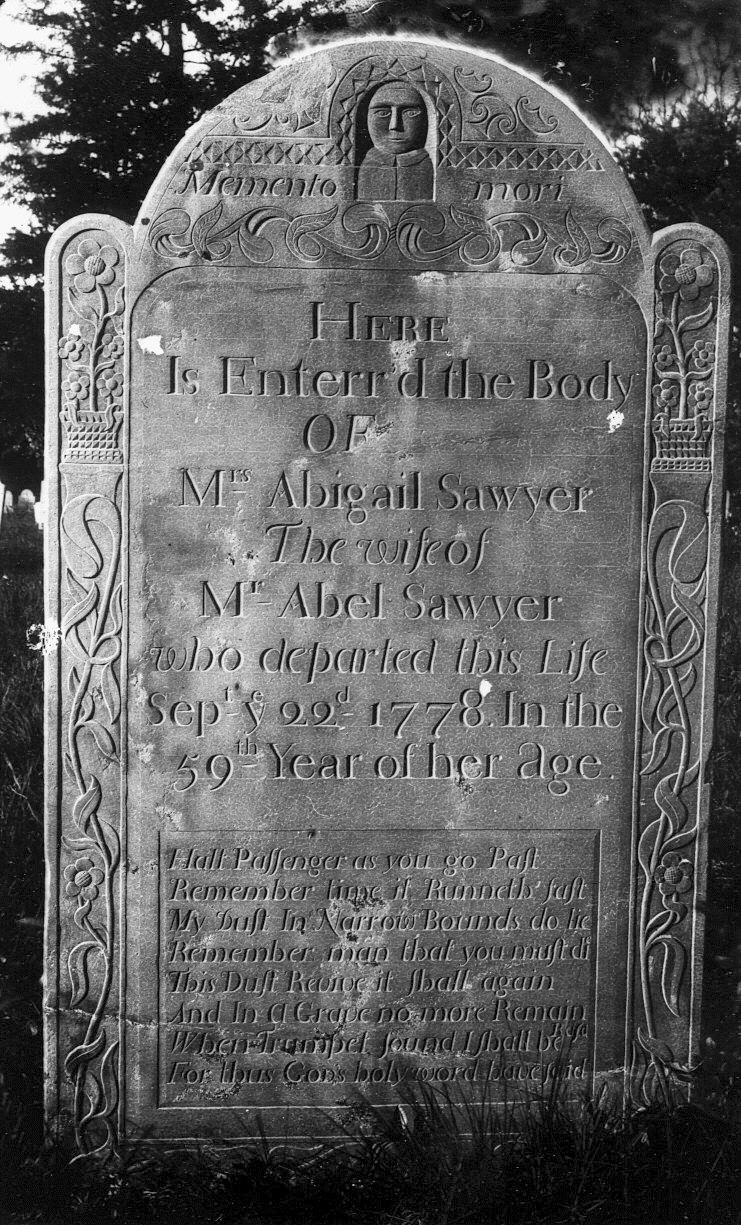 Memento mori
HERE
Is Enterr'd the Body
OF
Mrs Abigail Sawyer
The wife of
Mr Abel Sawyer
who departed this Life
Sept ye 22d 1778. In the
59th Year of her Age.
Halt Paſſenger as you go Paſt
Remember time it Runneth faſt
My Duſt In Narrow Bounds do lie
Remember man that you muſt di
This Duſt Revive it ſhall again
And In a Grave no more Remain
When Trumpet ſound I ſhall be
For thus Gods holy word have ſaid